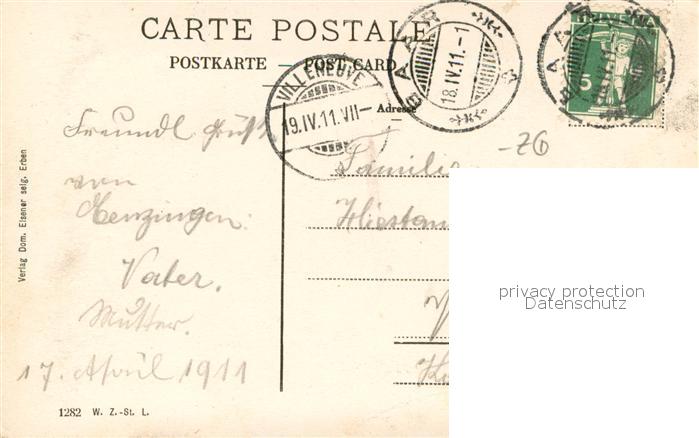 CARTE POSTALE
POSTKARTE – POST CARD
Adresse
HELVETIA
5
BAAR
18.IV.11.-1
VILLENEUVE
19.IV.11.VII-
Z6
Freundl. Grüße
von
Menzingen:
Vater.
Mutter.
17. April 1911
Familie
Hiestan
Verlag Dom. Elsener selg. Erben
1282 W. Z.-St. L.
privacy protection
Datenschutz